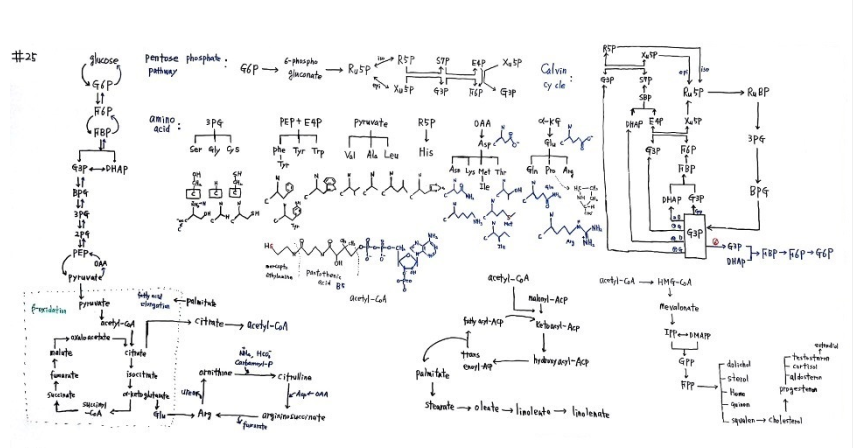 #25
glucose
G6P
F6P
FBP
G3P ↔ DHAP
BPG
3PG
2PG
PEP
OAA
pyruvate
pentose phosphate pathway :
G6P → 6-phospho gluconate → Ru5P
iso
R5P
epi
Xu5P
S7P
G3P
E4P
F6P
Xu5P
G3P
amino acid :
3PG
Ser Gly Cys
PEP + E4P
Phe Tyr Trp
Tyr
Pyruvate
Val Ala Leu
R5P
His
OAA
Asp
Asn Lys Met Thr
Ile
α-KG
Glu
Gln Pro Arg
Met
Ile
Arg
mercapto ethylamine
Pantothenic Acid B5
acetyl-CoA
Calvin cycle :
R5P
Xu5P
G3P
S7P
SBP
DHAP
E4P
Xu5P
G3P
F6P
FBP
DHAP
G3P
G3P
epi
iso
Ru5P → RuBP
3PG
BPG
G3P
DHAP
→ FBP → F6P → G6P
β-oxidation
pyruvate
acetyl-CoA
oxaloacetate
citrate
isocitrate
α-ketoglutarate
succinyl-CoA
succinate
fumarate
malate
fatty acid elongation
palmitate
citrate → acetyl-CoA
Glu → Arg
ornithine
NH4, HCO3
Carbamoyl-P
citrulline
Asp ← OAA
argininosuccinate
fumarate
urea
acetyl-CoA
malonyl-ACP
ketoacyl-ACP
hydroxyacyl-ACP
trans enoyl-ACP
fatty acyl-ACP
palmitate
stearate → oleate → linoleate → linolenate
acetyl-CoA → HMG-CoA
Mevalonate
IPP ↔ DMAPP
GPP
FPP
dolichol
sterol
Heme
quinon
squalen → cholesterol
progesteron
aldosteron
cortisol
testosteron
estradiol